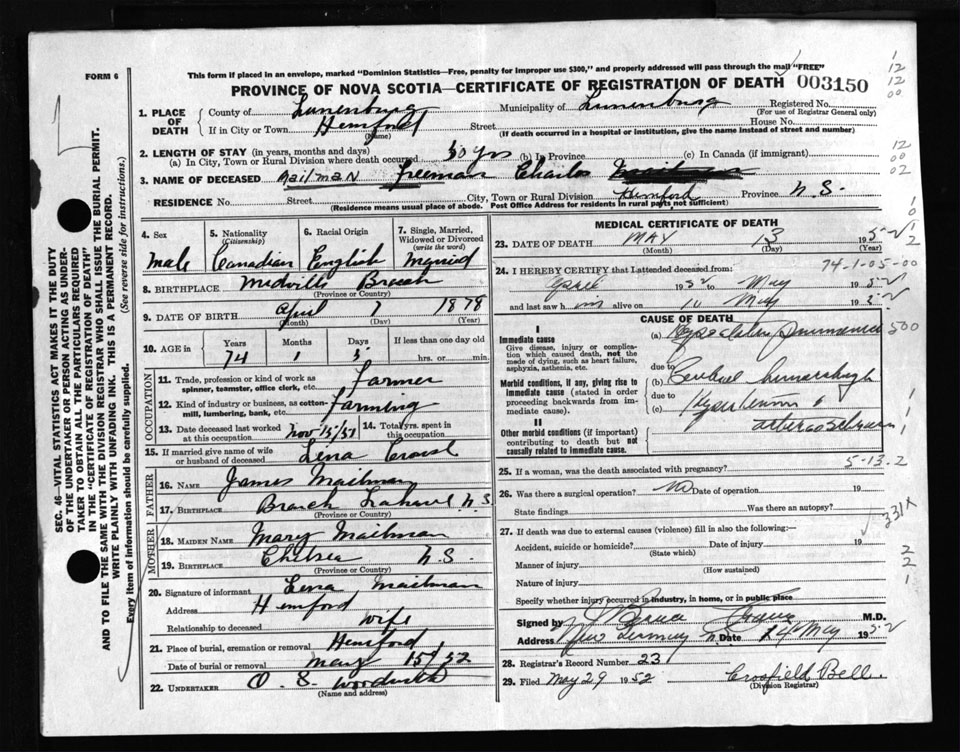 FORM 6
This form if placed in an envelope, marked "Dominion Statistics—Free, penalty for improper use $300," and properly addressed will pass through the mail "FREE"
PROVINCE OF NOVA SCOTIA—CERTIFICATE OF REGISTRATION OF DEATH 003150
1. PLACE OF DEATH
County of Lunenburg Municipality of Lunenburg Registered No.
(For use of Registrar General only)
If in City or Town Hemford Street House No.
(Name) (If death occurred in a hospital or institution, give the name instead of street and number)
2. LENGTH OF STAY (in years, months and days)
(a) In City, Town or Rural Division where death occurred 50 yrs (b) In Province (c) In Canada (if immigrant)
3. NAME OF DECEASED Mailman Freeman Charles
RESIDENCE No. Street City, Town or Rural Division Hemford Province N.S.
(Residence means usual place of abode. Post Office Address for residents in rural parts not sufficient)
4. Sex 5. Nationality (Citizenship) 6. Racial Origin 7. Single, Married, Widowed or Divorced (write the word)
Male Canadian English Married
8. BIRTHPLACE Branch
(Province or Country)
9. DATE OF BIRTH April 1878
(Month) (Day) (Year)
10. AGE in Years Months Days If less than one day old
74 1 hrs. or min.
OCCUPATION
11. Trade, profession or kind of work as spinner, teamster, office clerk, etc. Farmer
12. Kind of industry or business, as cotton-mill, lumbering, bank, etc. Farming
13. Date deceased last worked at this occupation Nov 15/51 14. Total yrs. spent in this occupation
15. If married give name of wife or husband of deceased Lena
FATHER
16. Name James Mailman
17. Birthplace Branch Lahave N.S
(Province or Country)
MOTHER
18. Maiden Name Mary Mailman
19. Birthplace Chelsea N.S.
(Province or Country)
20. Signature of informant Lena Mailman
Address Hemford
Relationship to deceased wife
21. Place of burial, cremation or removal Hemford
Date of burial or removal May 15/52
22. UNDERTAKER O. S.
(Name and address)
MEDICAL CERTIFICATE OF DEATH
23. DATE OF DEATH MAY 13 1952
(Month) (Day) (Year)
74-1-05-00
24. I HEREBY CERTIFY that I attended deceased from:
April 1952 to May 1952
and last saw him alive on 10 May 1952
CAUSE OF DEATH
I
Immediate cause
Give disease, injury or complication which caused death, not the mode of dying, such as heart failure, asphyxia, asthenia, etc.
(a) Hypostatic Pneumonia 500
due to
Morbid conditions, if any, giving rise to immediate cause (stated in order proceeding backwards from immediate cause).
(b) Cerebral hemorrhage
due to
(c)
II
Other morbid conditions (if important) contributing to death but not causally related to immediate cause.
25. If a woman, was the death associated with pregnancy? 5-13.2
26. Was there a surgical operation? No Date of operation 19
State findings Was there an autopsy?
331x
27. If death was due to external causes (violence) fill in also the following:—
Accident, suicide or homicide? Date of injury 19
(State which)
Manner of injury
(How sustained)
Nature of injury
Specify whether injury occurred in industry, in home, or in public place
Signed by M.D.
Address New Germany Date 14 May 1952
28. Registrar's Record Number 23
29. Filed May 29 1952 Crossfield Bell
(Division Registrar)
SEC. 46—VITAL STATISTICS ACT MAKES IT THE DUTY
OF THE UNDERTAKER OR PERSON ACTING AS UNDER-
TAKER TO OBTAIN ALL THE PARTICULARS REQUIRED
IN THE "CERTIFICATE OF REGISTRATION OF DEATH"
AND TO FILE THE SAME WITH THE DIVISION REGISTRAR WHO SHALL ISSUE THE BURIAL PERMIT.
WRITE PLAINLY WITH UNFADING INK. THIS IS A PERMANENT RECORD.
Every item of information should be carefully supplied. (See reverse side for instructions.)